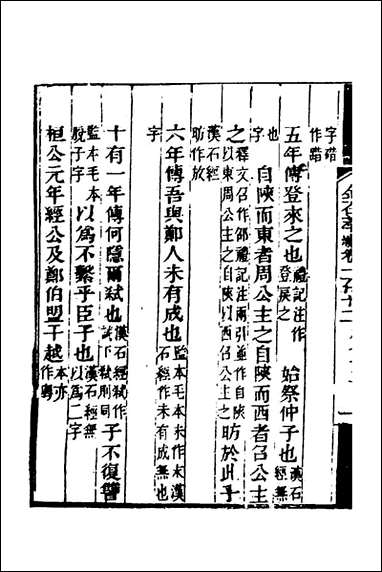 字碏
作踖
五年傳登來之也禮記注作登戾之　始祭仲子也漢石經無
也字　自陝而東者周公主之自陝而西者召公主
之釋文召作邵禮記注兩引並作自陝以東周公主之自陝以西召公主之昉於此乎
漢石經昉作放
六年傳吾與鄭人未有成也監本毛本未作末漢石經作未有成無也
字
十有一年傳何隱爾弒也漢石經弒作試下弒則同子不復讐
監本毛本脫子字以爲不繫乎臣子也漢石經無以爲二字
桓公元年經公及鄭伯盟于越本亦作粵